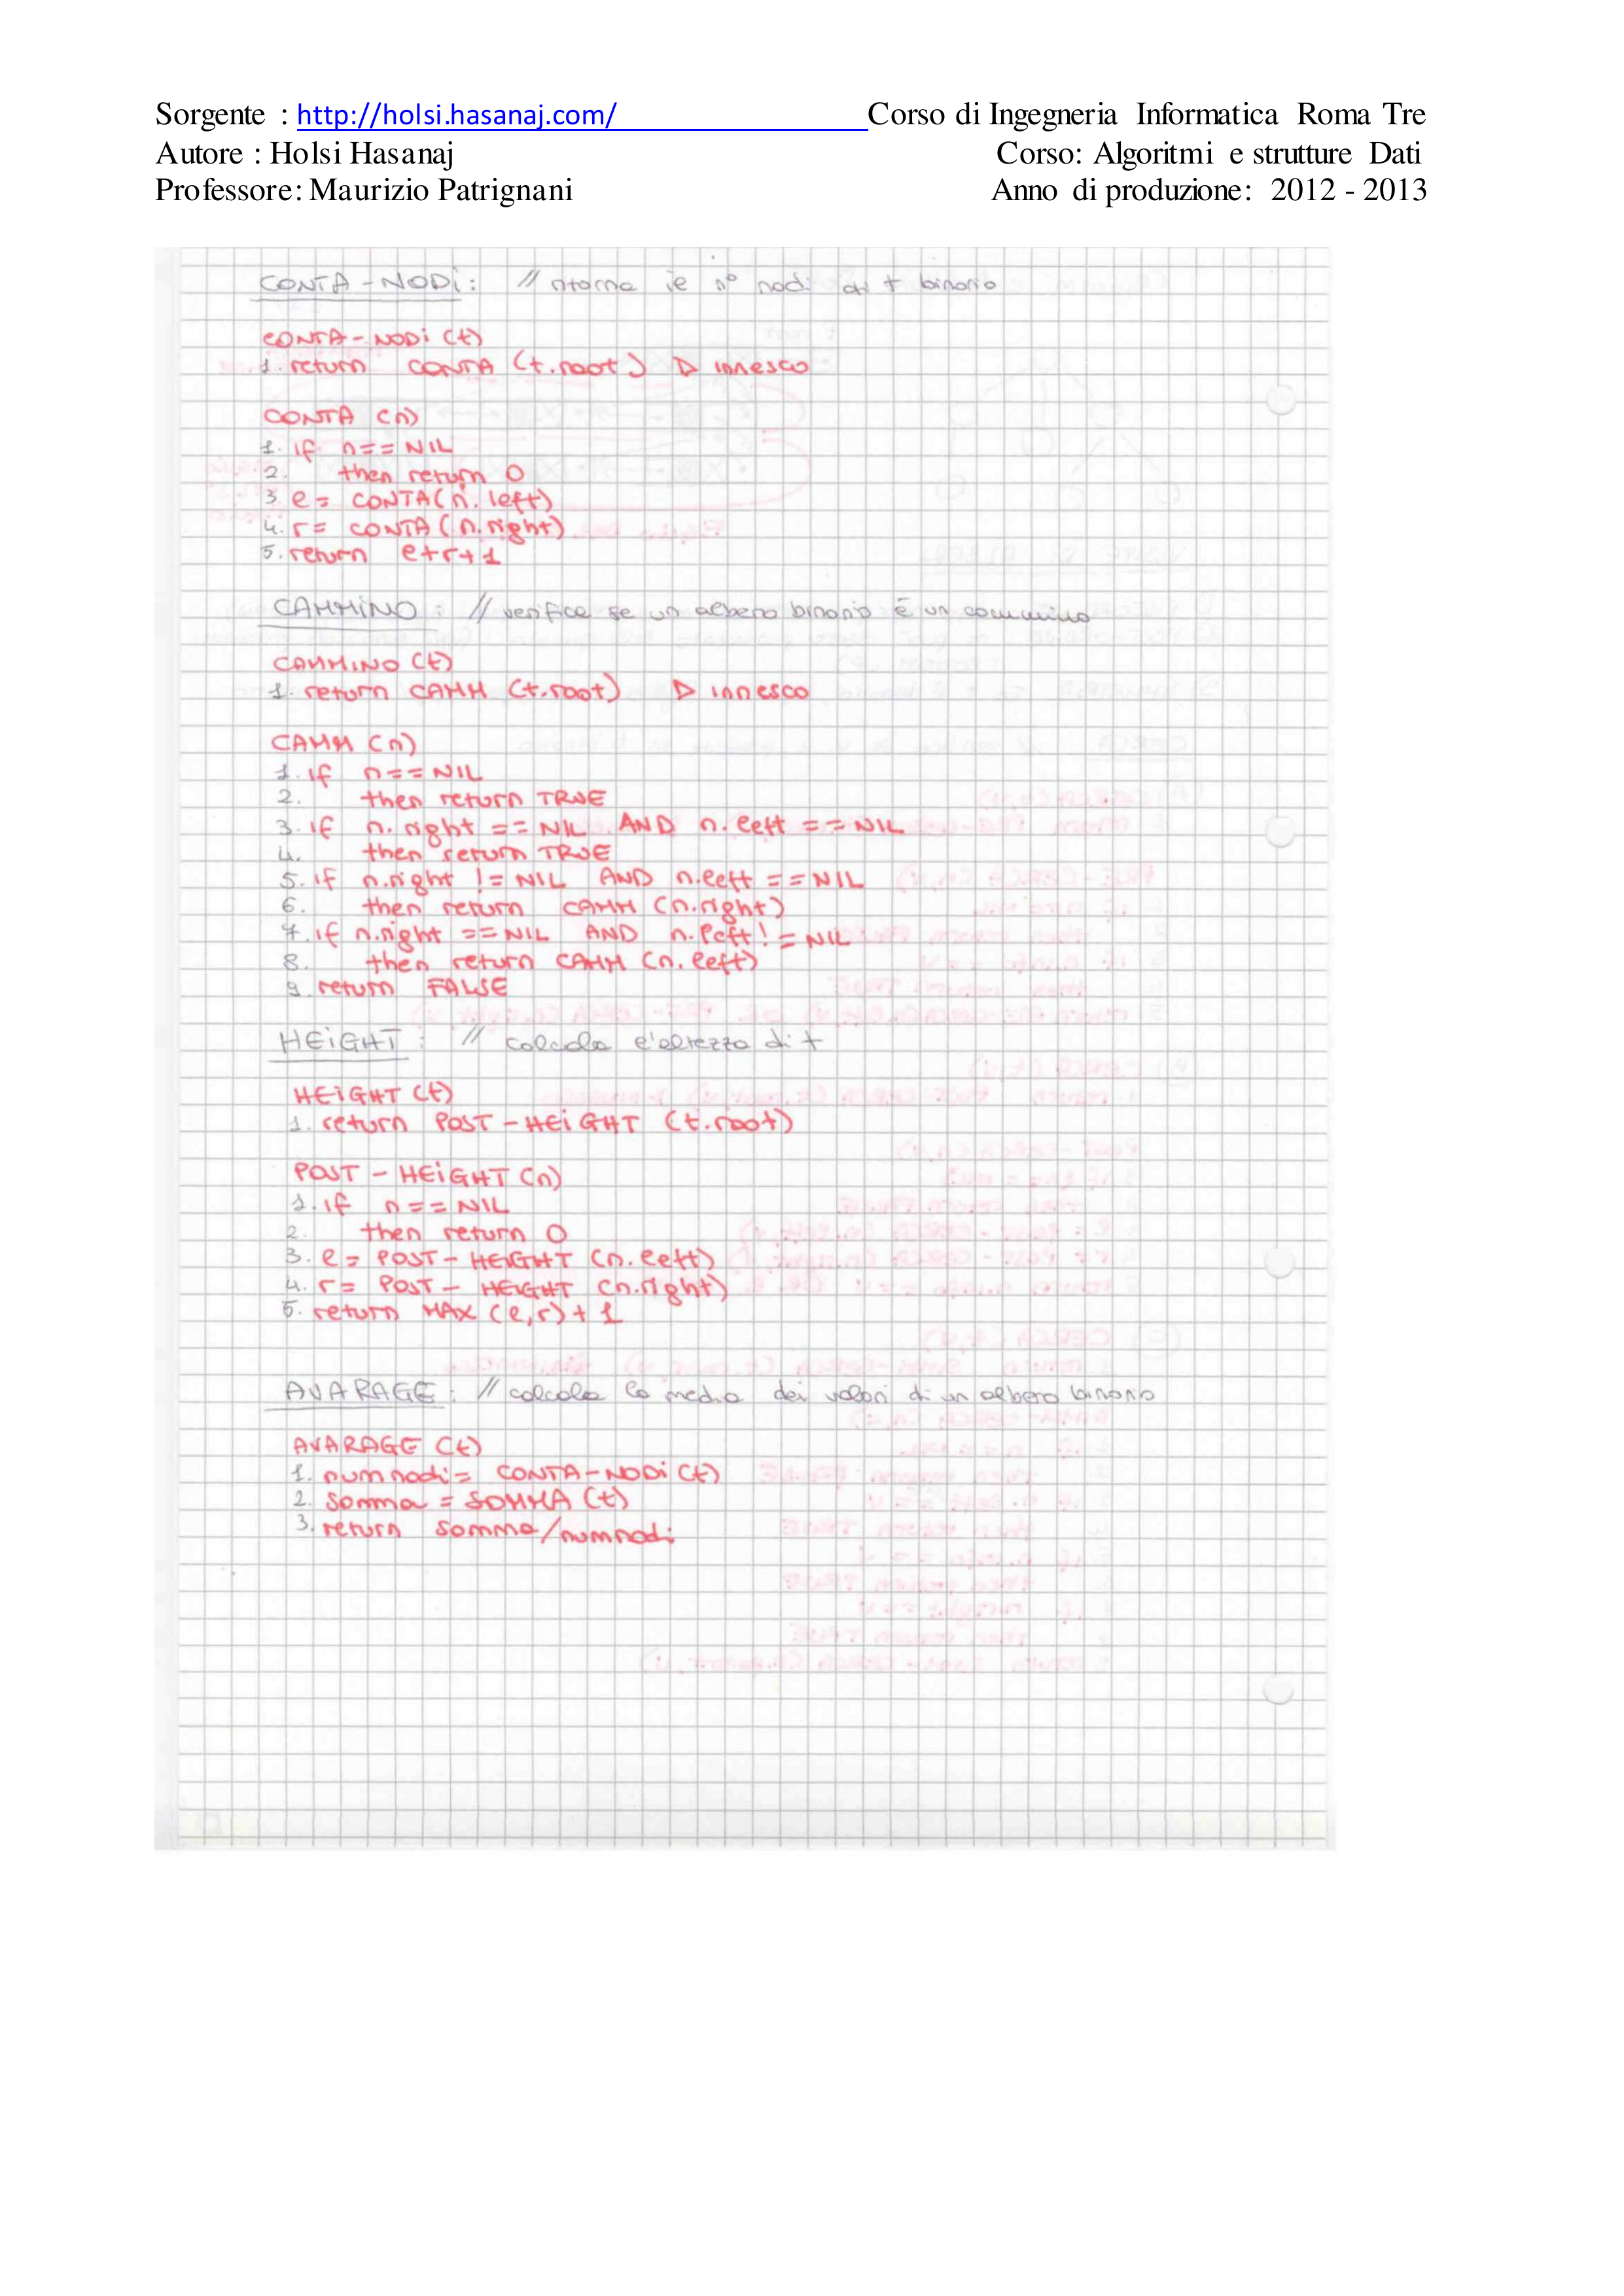 Sorgente : http://holsi.hasanaj.com/ Corso di Ingegneria Informatica Roma Tre
Autore : Holsi Hasanaj Corso: Algoritmi e strutture Dati
Professore: Maurizio Patrignani Anno di produzione: 2012 - 2013
CONTA-NODI: // ritorna il n° nodi di t binario
CONTA-NODI (t)
1. return CONTA (t.root) ▷ innesco
CONTA (n)
1. if n == NIL
2. then return 0
3. l = CONTA (n.left)
4. r = CONTA (n.right)
5. return l+r+1
CAMMINO: // verifica se un albero binario è un cammino
CAMMINO (t)
1. return CAMM (t.root) ▷ innesco
CAMM (n)
1. if n == NIL
2. then return TRUE
3. if n.right == NIL AND n.left == NIL
4. then return TRUE
5. if n.right != NIL AND n.left == NIL
6. then return CAMM (n.right)
7. if n.right == NIL AND n.left != NIL
8. then return CAMM (n.left)
9. return FALSE
HEIGHT: // calcola l'altezza di t
HEIGHT (t)
1. return POST-HEIGHT (t.root)
POST-HEIGHT (n)
1. if n == NIL
2. then return 0
3. l = POST-HEIGHT (n.left)
4. r = POST-HEIGHT (n.right)
5. return MAX (l,r) + 1
AVARAGE: // calcola la media dei valori di un albero binario
AVARAGE (t)
1. numnodi = CONTA-NODI (t)
2. somma = SOMMA (t)
3. return somma/numnodi